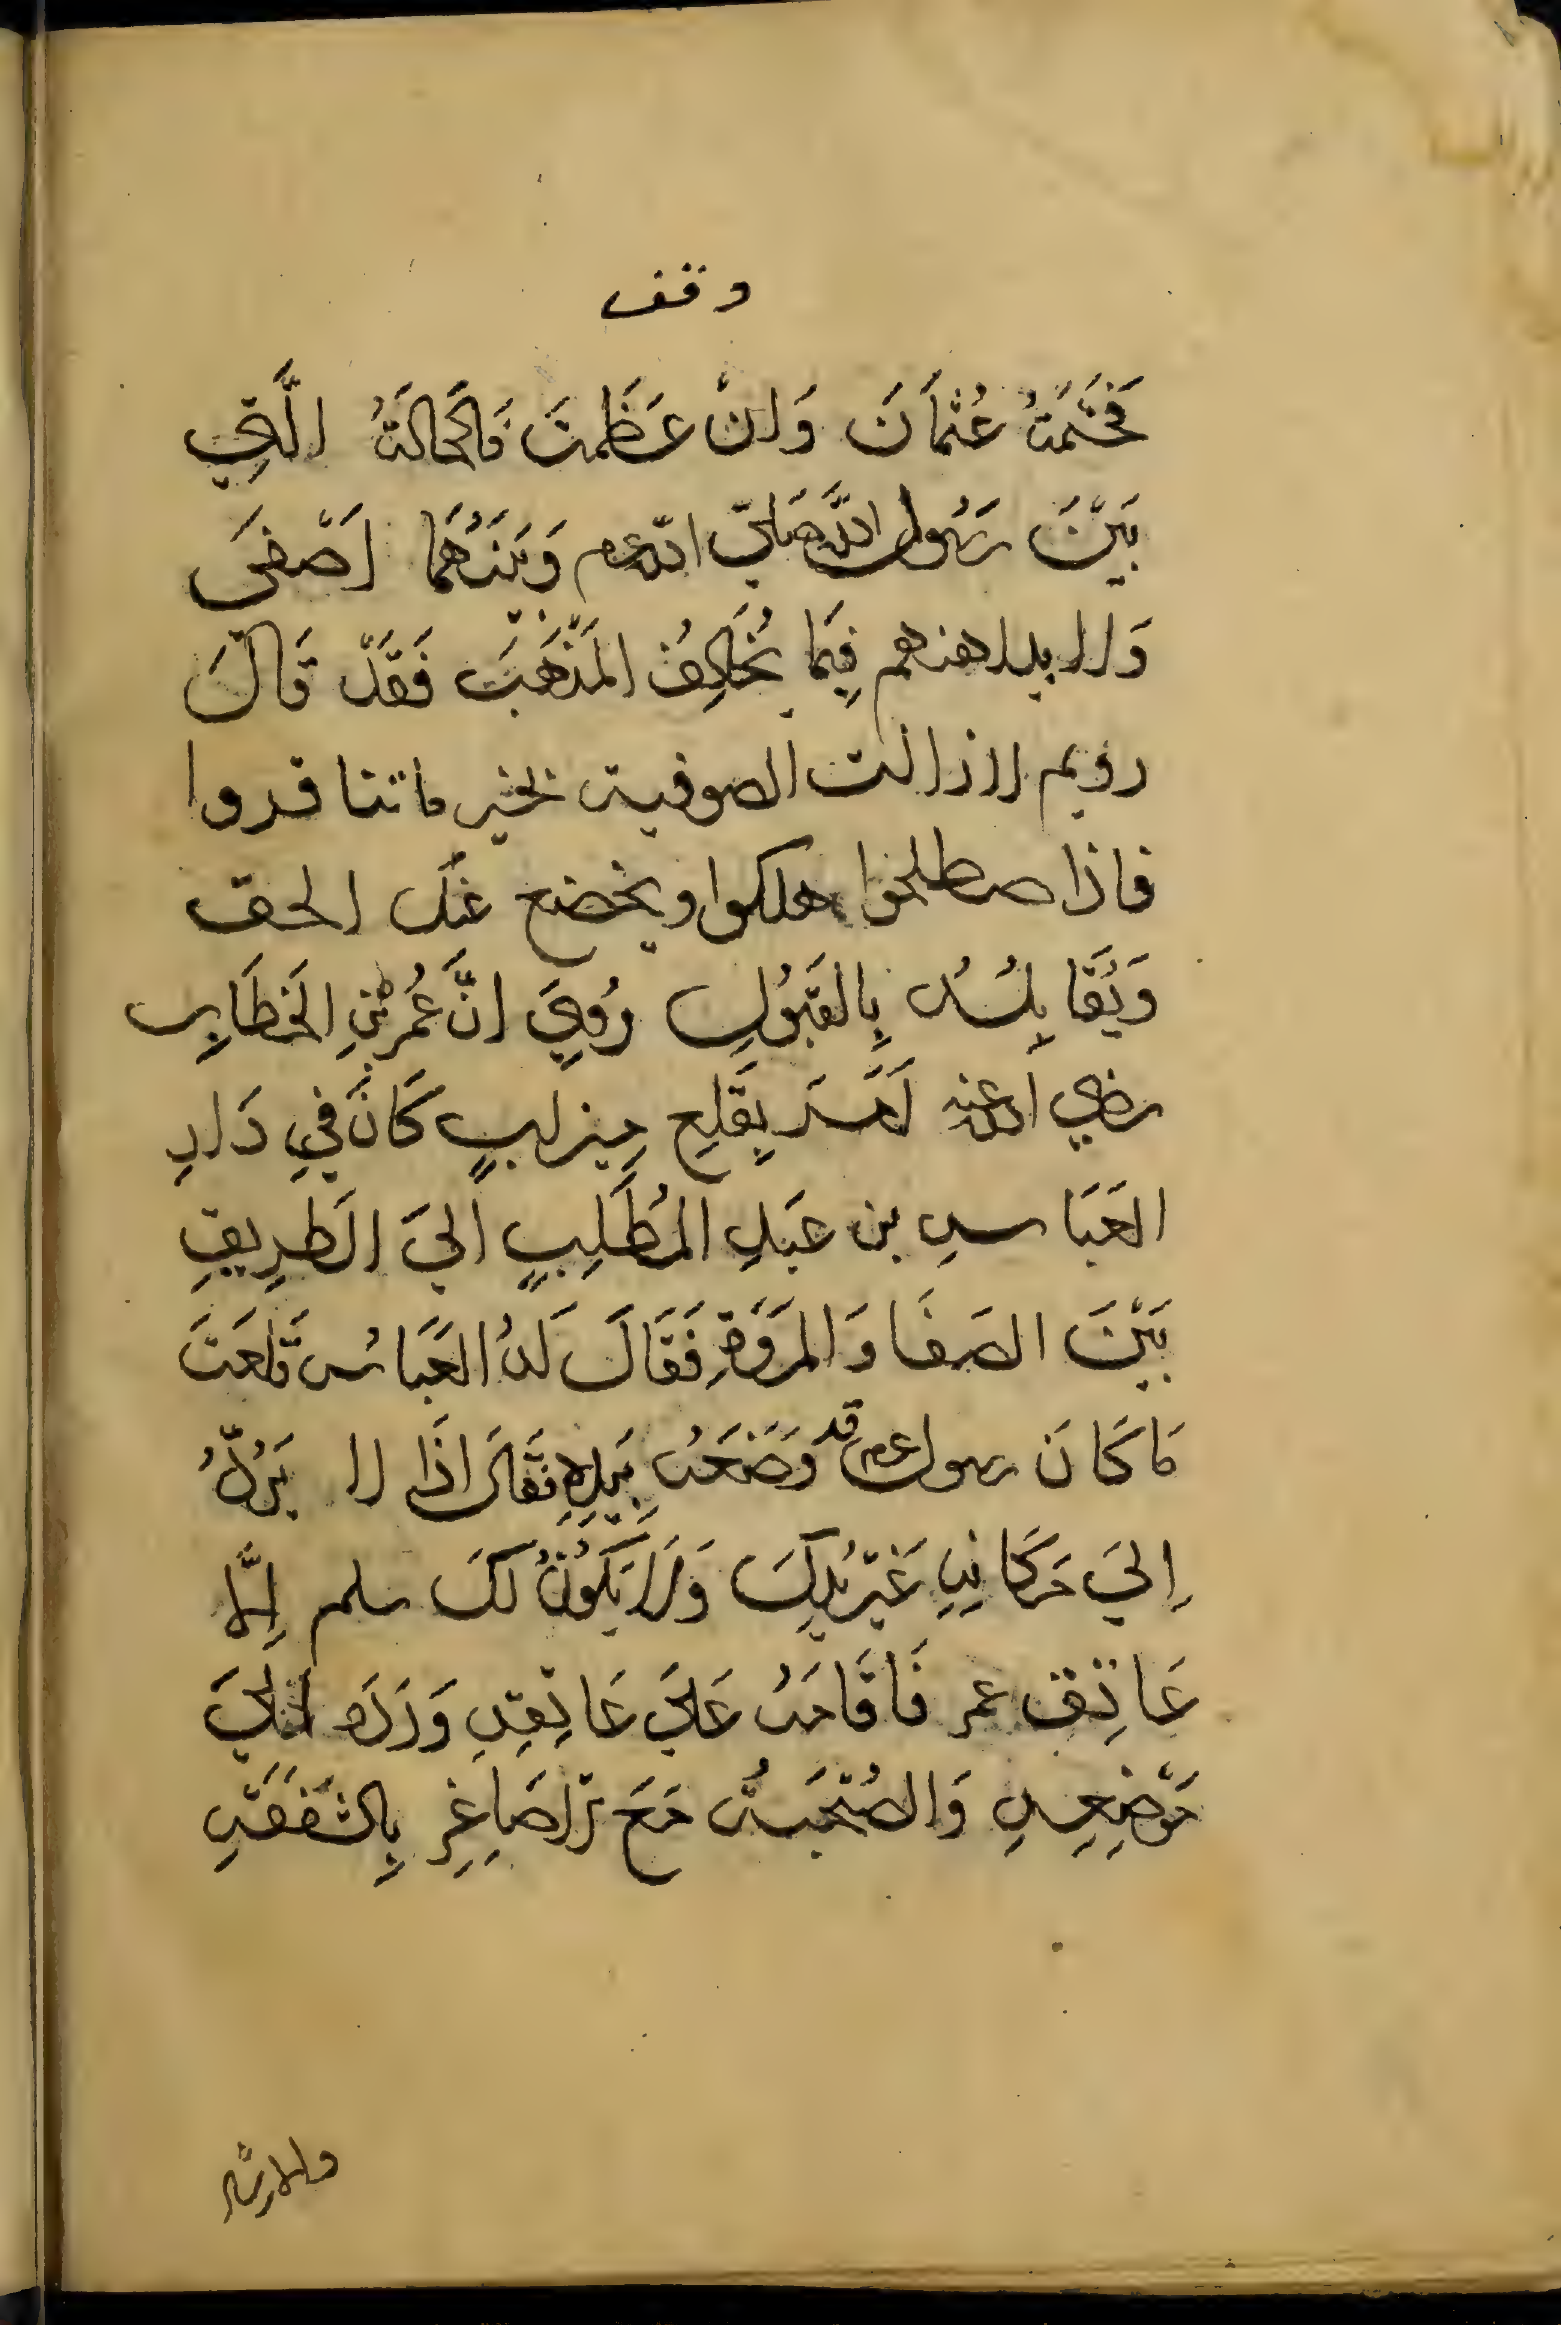 وقف
فَحَشَمَتُ عُثْمَانَ وَانْ عَظَمتَ فَالحَالَتُ الَّتِي
بَيْنَ رَسُول اللَّه صَلَيّ اللّه عم وَبَيْنَهُمَا اَصْفيَ
وَلا يداهنهم فِيمَا يُخَالِفُ المَذْهَبَ فَقَدْ قَالَ
رؤيم لازالت الصوفية بخير ماتنا قروا
فاذا صطلحوا هلكوا ويخضع عند الحق
وَيُقَا بِلُسُه بِالقَبُولِ رُوِيَ انَّ عُمَر بْنِ الخَطَابِ
رضي الله عنه اَمَرَ بِقَلعِ مِيزابٍ كَانَ فيِ دَارِ
العَبَاسِ بن عَبَدِ المُطَلِبٍ اليَ الَطرِيقِ
بَيْنَ الصَفَا وَالمَروَةِ فَقَالَ لَهُ العَبَاسُ قَلعَتَ
مَاكَانَ رسول عم قد وَضَعَهُ بِيَدِهِ فَقَالَ اذَا لا يَرُدُّهُ
اِليَ مَكَانِهِ غَيْر يُدِكَ وَلَا يَكُونُ لَكَ سلم اِلَّا
عَاتِقِ عمر فَاقَامَهُ عَلَيَ عَاتِقِهِ وَرَدَه اليَ
مَوْضِعِهِ وَالصُحْبَتُ مَعَ الاصَاغِرِ بِالشَفَقَتِ
والارشاد